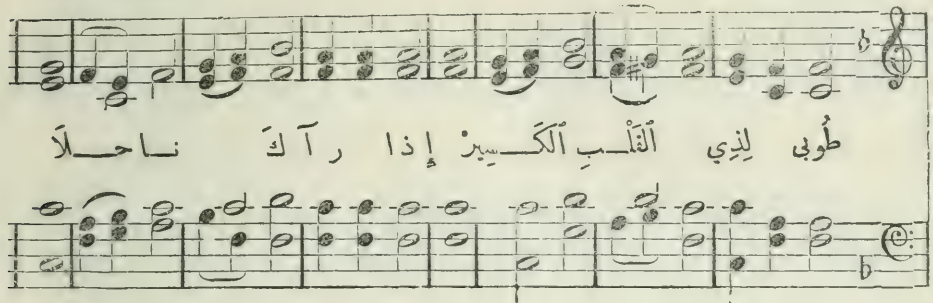 طُوبى لِذِي ٱلقَلْبِ ٱلكَسِيرْ إِذا رآكَ ناحلًا